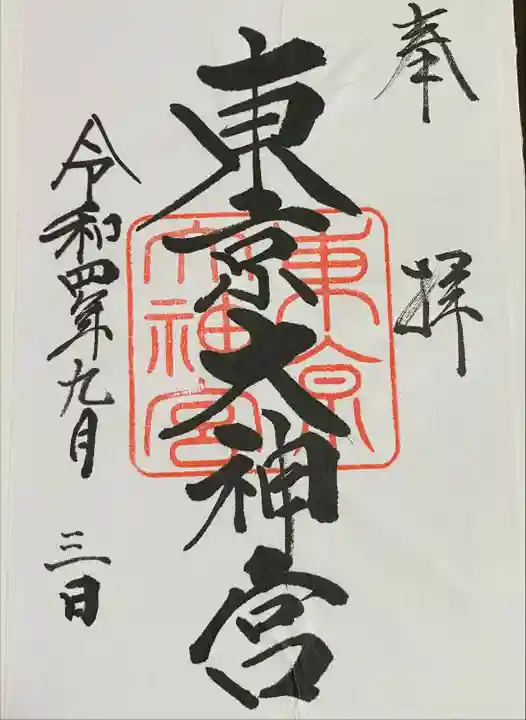 奉拝
東京大神宮
東京
大神宮
令和四年九月三日